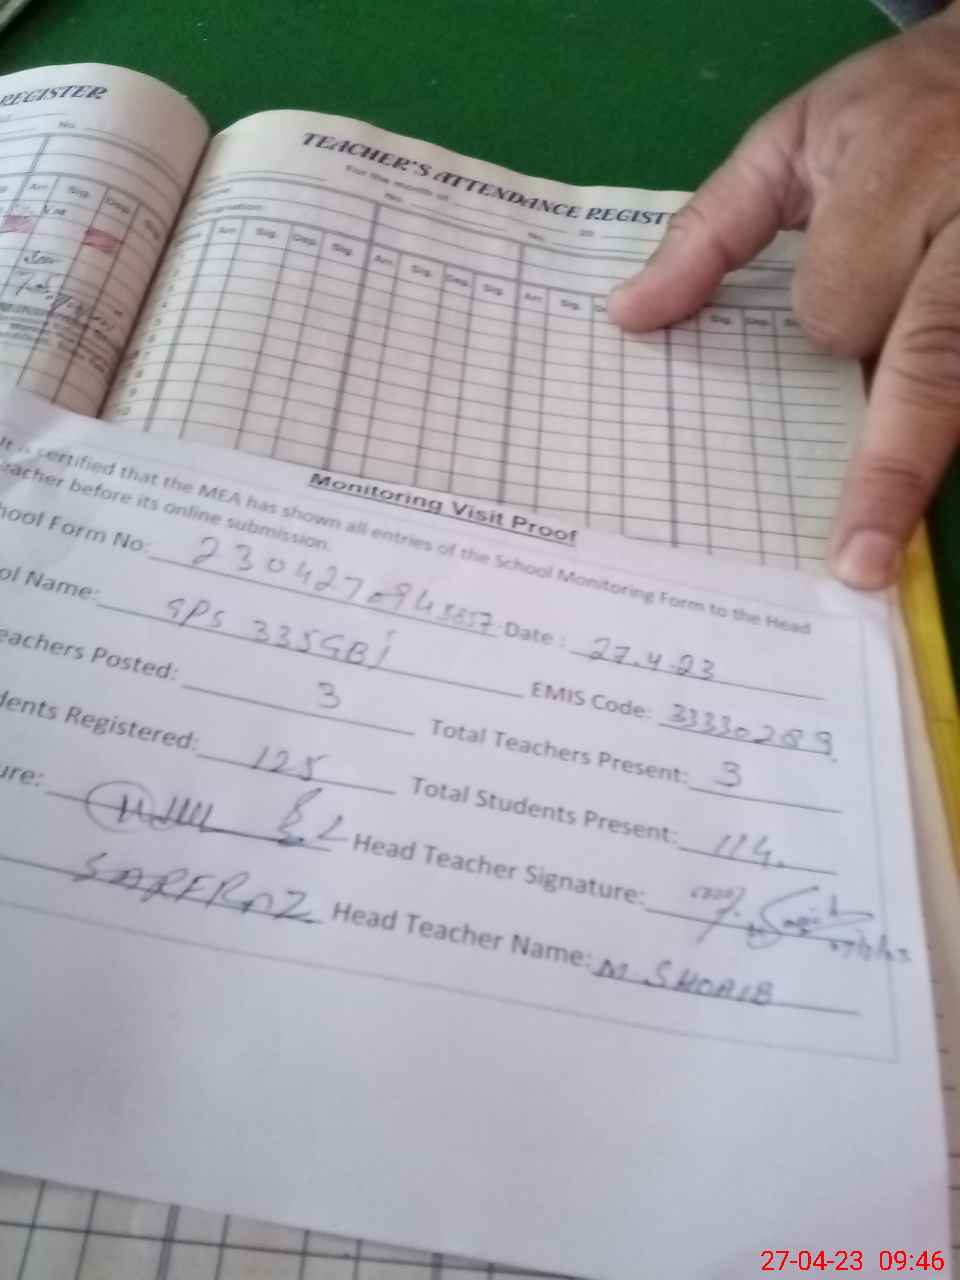 REGISTER
No.
Arr. Sig. Dep. Sig.
TEACHER'S ATTENDANCE REGIST
For the month of 20
No. No.
Designation
Arr. Sig. Dep. Sig. Arr. Sig. Dep. Sig. Arr. Sig. Sig. Dep.
Monitoring Visit Proof
It is certified that the MEA has shown all entries of the School Monitoring Form to the Head
eacher before its online submission.
hool Form No: Date: 27.4.23
ol Name: GPS 335GB EMIS Code: 33330289
eachers Posted: 3 Total Teachers Present: 3
dents Registered: 125 Total Students Present: 114.
ure: Head Teacher Signature:
SARFRAZ Head Teacher Name: M SHOAIB
27-04-23 09:46